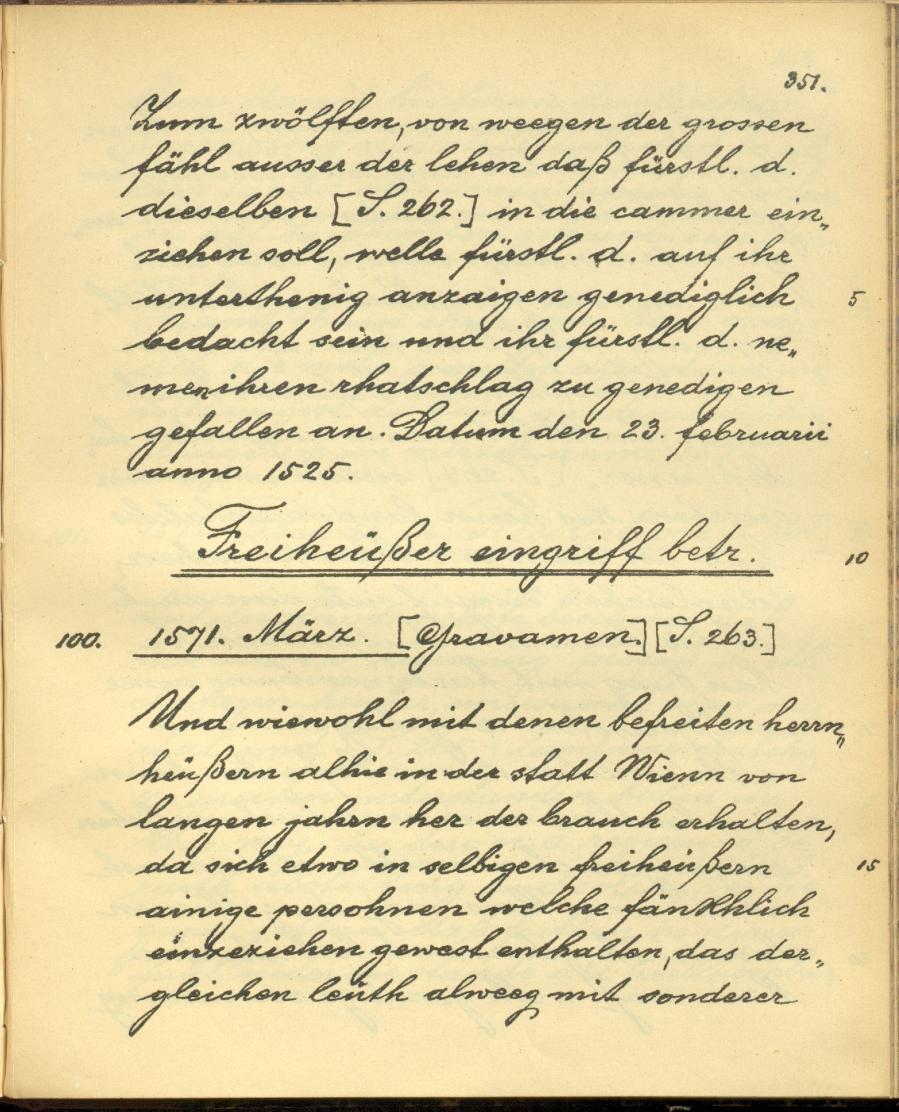 351.
Zum zwölften, von weegen der grossen
fähl ausser der lehen daß fürstl. d.
dieselben [S. 262.] in die cammer ein„
ziehen soll, welle fürstl. d. auf ihr
unterthenig anzaigen genediglich 5
bedacht sein und ihr fürstl. d. ne„
men ihren rhatschlag zu genedigen
gefallen an. Datum den 23. februarii
anno 1525.
Freiheüßer eingriff betr. 10
100. 1571. März. [Gravamen.] [S. 263.]
Und wiewohl mit denen befreiten herrn„
heüßern alhie in der statt Wienn von
langen jahrn her der brauch erhalten,
da sich etwo in selbigen freiheüßern 15
ainige persohnen welche fänkhlich
einzeziehen gewest enthalten, das der„
gleichen leüth alweeg mit sonderer